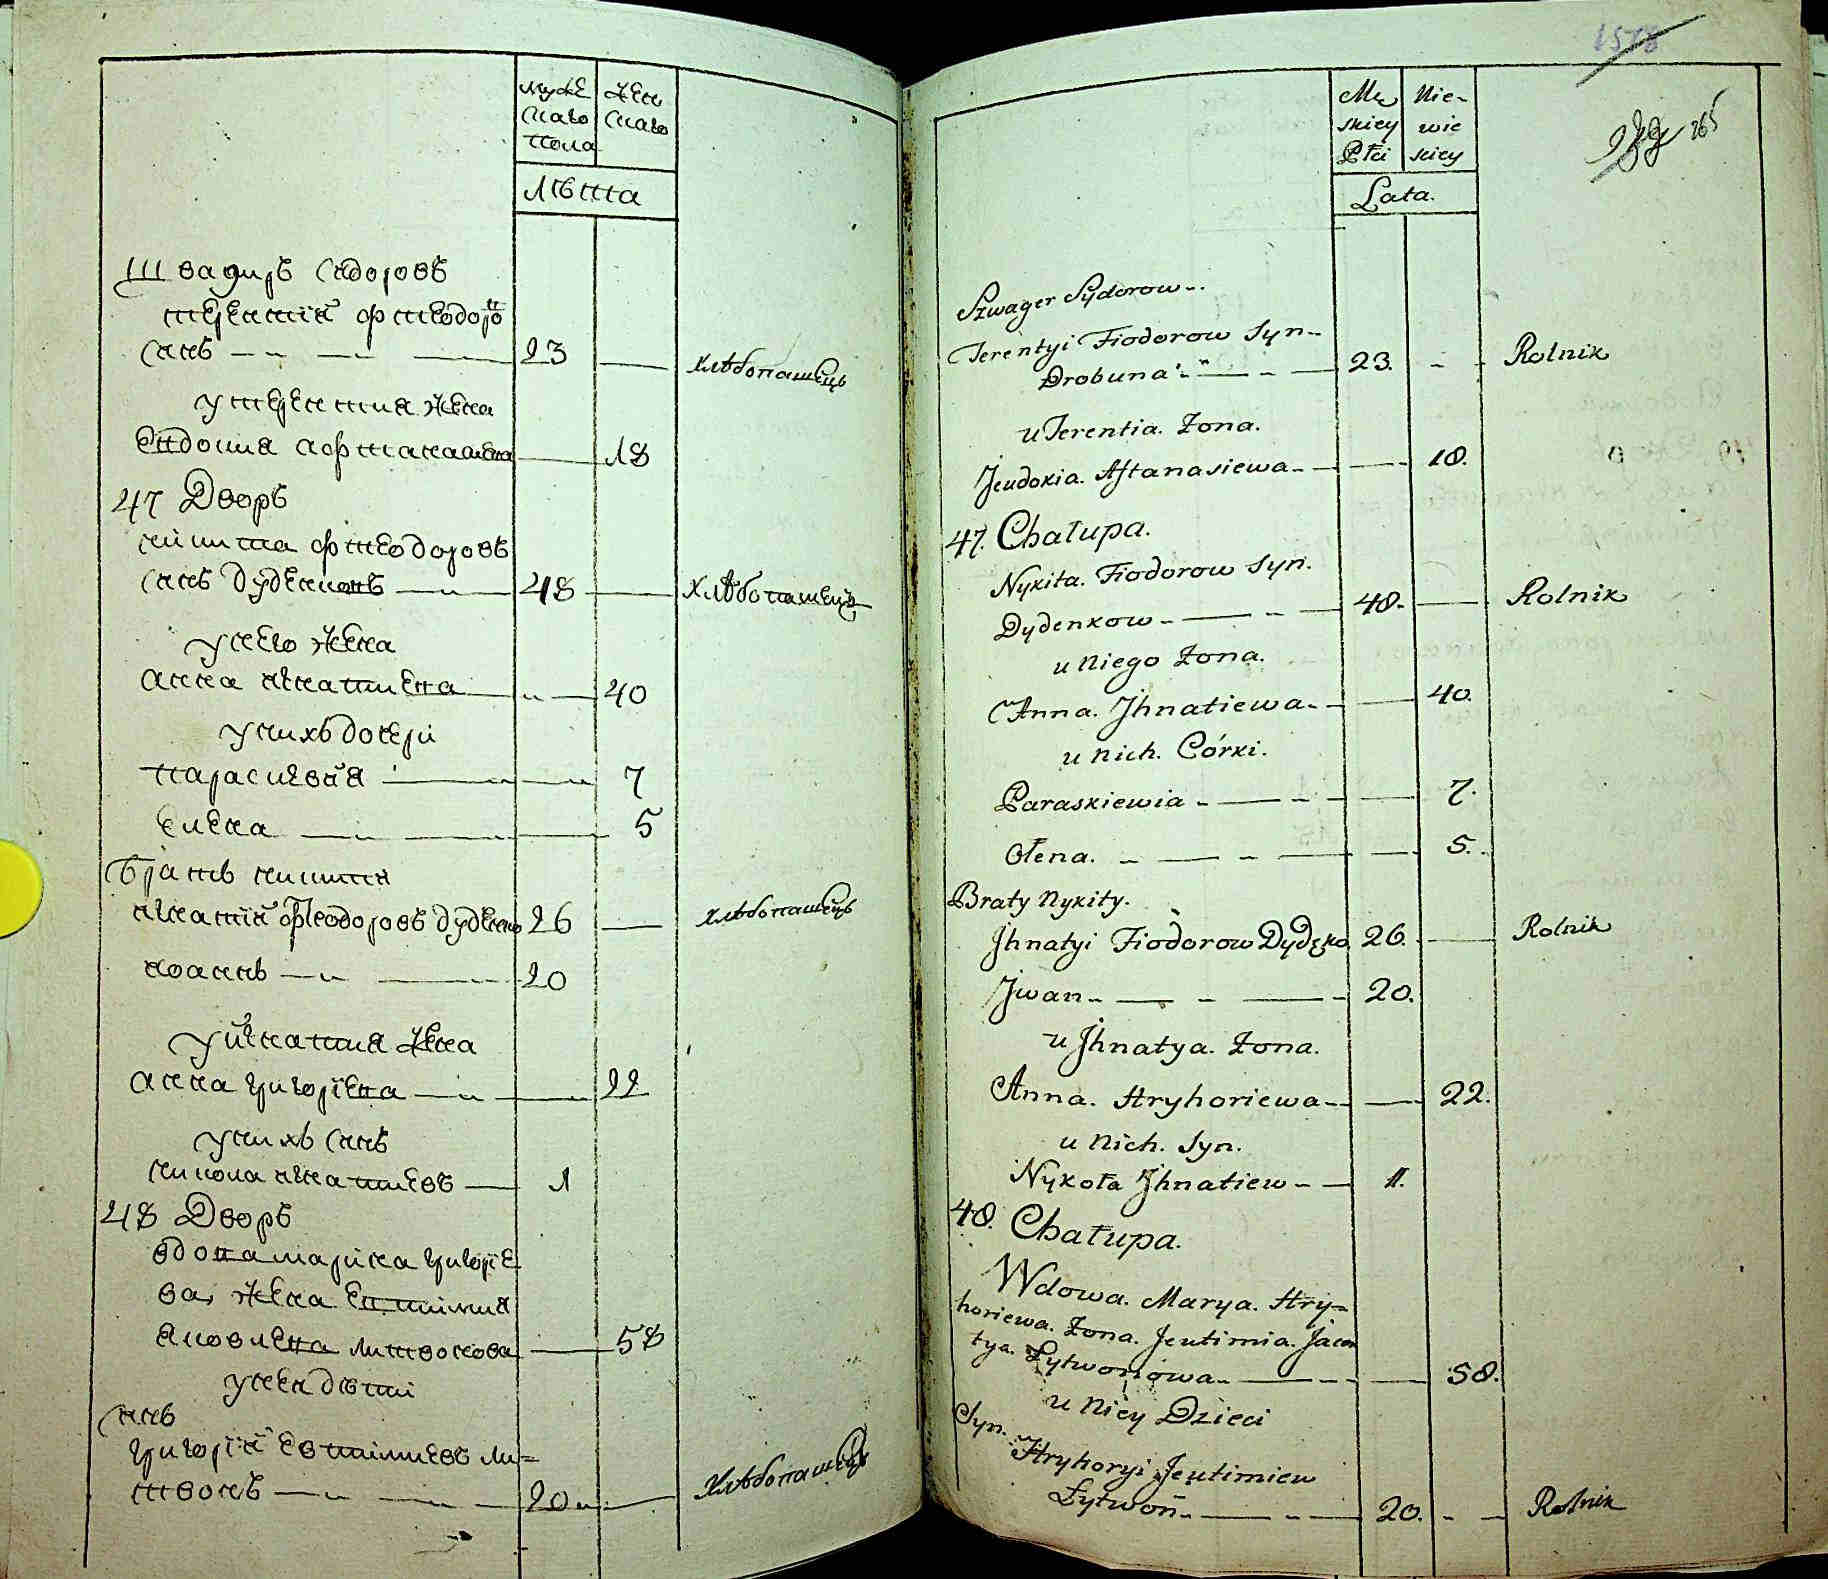 Муже
скаго
пола
Жен
скаго
Лѣта
Швагиръ Сидоровъ
терентій фтеодоро
синъ 23 хлѣбопашецъ
у терентия жена
Евдокия афтанасиева 18
47 Дворъ
никита фтеодоровъ
синъ дуденковъ 48 хлѣбопашецъ
у него жена
анна игнатиева 40
у нихъ дочери
параскевия 7
елена 5
братъ никити
игнатій фтеодоровъ дуденко 26 хлѣбопашецъ
иоаннъ 20
у игнатия жена
анна григориева 22
у нихъ синъ
никола игнатиевъ 1
48 Дворъ
вдова марина григорие
ва, жена евтимия
яковлева литвонова
58
у нея дѣти
синъ
григорій евтимиевъ ли=
твонъ 20 хлѣбопашецъ
1578
265
Mę
skiey
Płci
Nie-
wie
skiey
Lata.
Szwager Sydorow
Terentyi Fiodorow Syn
Drobuna 23. Rolnik
u Terentia. Zona.
Jeudokia. Aftanasiewa 18.
47. Chałupa.
Nykita. Fiodorow Syn.
Dydenkow 48. Rolnik
u Niego Zona.
Anna. Jhnatiewa 40.
u nich. Córki.
Paraskiewia 7.
Ołena. 5.
Braty Nykity.
Jhnatyi Fiodorow Dydęko 26. Rolnik
Jwan 20.
u Jhnatya. Zona.
Anna. Hryhoriewa 22.
u Nich. Syn.
Nykoła Jhnatiew 1.
48. Chałupa.
Wdowa. Marya. Hry=
horiewa. Zona. Jeutimia.
tya. Łytwonowa 58.
u Niey Dzieci
Syn.
Hryhoryi Jeutimiew
Łytwoń 20. Rolnik